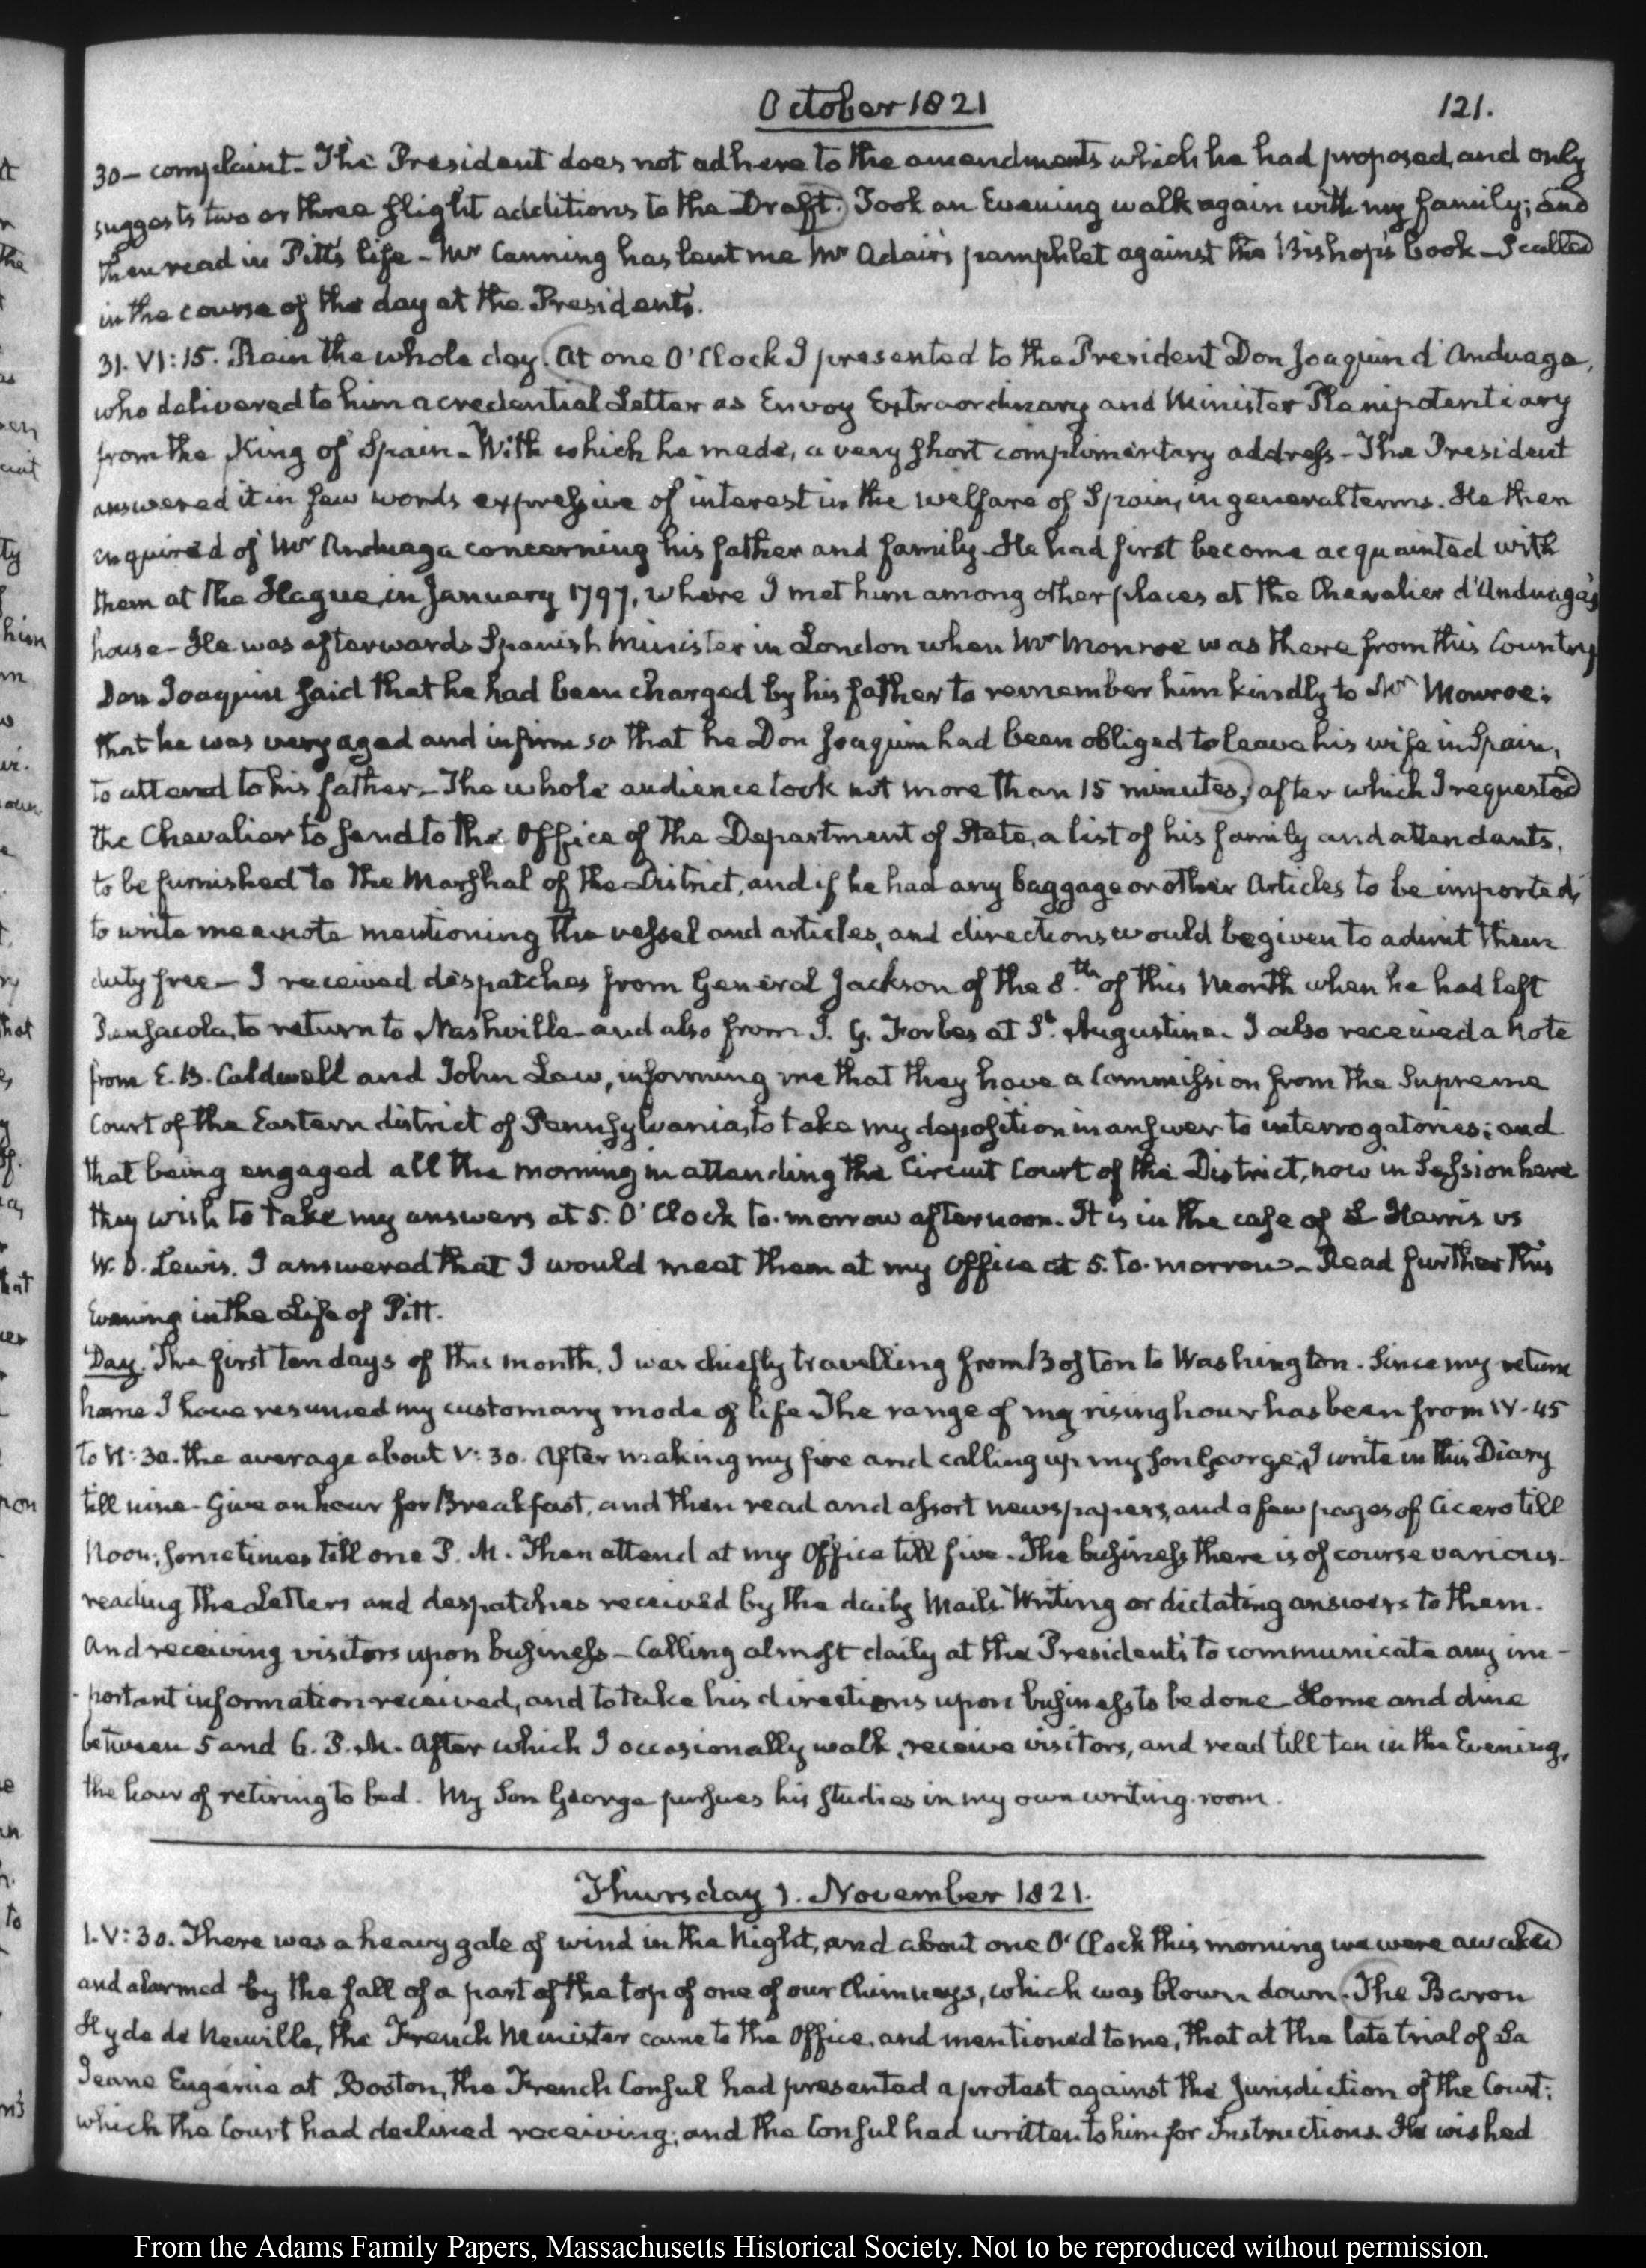 October 1821
121.
30 – complaint – The President does not adhere to the amendments which he had proposed, and only
suggests two or three slight additions to the Draft. Took an Evening walk again with my family; and
then read in Pitt's life – Mr Canning has lent me Mr Adair's pamphlet against the Bishop's book – I called
in the course of the day at the President's.
31. VI:15. Rain the whole day. At one O'Clock I presented to the President Don Joaquin d'Anduaga,
who delivered to him a credential Letter as Envoy Extraordinary and Minister Plenipotentiary
from the King of Spain – With which he made, a very short complimentary address – The President
answered it in few words expressive of interest in the welfare of Spain, in general terms. He then
enquired of Mr Anduaga concerning his father and family – He had first become acquainted with
them at the Hague, in January 1797, where I met him among other places at the Chevalier d'Anduaga's
house – He was afterwards Spanish Minister in London when Mr Monroe was there from this Country
Don Joaquin said that he had been charged by his father to remember him kindly to Mr Monroe;
that he was very aged and infirm so that he Don Joaquin had been obliged to leave his wife in Spain,
to attend to his father – The whole audience took not more than 15 minutes, after which I requested
the Chevalier to send to the Office of the Department of State, a list of his family and attendants,
to be furnished to the Marshal of the District, and if he had any baggage or other Articles to be imported,
to write me a note mentioning the vessel and articles, and directions would be given to admit them
duty free – I received dispatches from General Jackson of the 8.th of this Month when he had left
Pensacola, to return to Nashville – and also from J. G. Forbes at St. Augustine. I also received a Note
from E. B. Caldwell and John Law, informing me that they have a Commission from the Supreme
Court of the Eastern district of Pennsylvania, to take my deposition in answer to interrogatories; and
that being engaged all the morning in attending the Circuit Court of the District, now in Session here
they wish to take my answers at 5. O'Clock to-morrow afternoon. It is in the case of L Harris vs
W. D. Lewis. I answered that I would meet them at my Office at 5. to-morrow – Read further this
Evening in the Life of Pitt.
Day. The first ten days of this month, I was chiefly travelling from Boston to Washington. Since my return
home I have resumed my customary mode of life The range of my rising hour has been from IV-45
to VI:30. the average about V:30. After making my fire and calling up my Son George, I write in this Diary
till nine – Give an hour for Breakfast, and then read and assort newspapers, and a few pages of Cicero till
Noon; sometimes till one P. M. Then attend at my Office till five – The business there is of course various –
reading the Letters and despatches received by the daily Mails. Writing or dictating answers to them.
And receiving visitors upon business – Calling almost daily at the President's to communicate any im-
-portant information received, and to take his directions upon business to be done – Home and dine
between 5 and 6. P. M. After which I occasionally walk, receive visitors, and read till ten in the Evening,
the hour of retiring to bed. My Son George pursues his studies in my own writing-room.
Thursday 1. November 1821.
1. V:30. There was a heavy gale of wind in the Night, and about one O'Clock this morning we were awaked
and alarmed by the fall of a part of the top of one of our Chimneys, which was blown down. The Baron
Hyde de Neuville, the French Minister came to the Office, and mentioned to me, that at the late trial of La
Jeune Eugénie at Boston, the French Consul had presented a protest against the Jurisdiction of the Court;
which the Court had declined receiving; and the Consul had written to him for Instructions. He wished
From the Adams Family Papers, Massachusetts Historical Society. Not to be reproduced without permission.